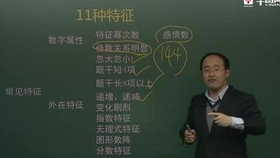 11种特征
数字属性
特征幂次数
感情数
倍数关系明显
144
忽大忽小
题干短4项
常见特征
外在特征
题干长8项以上
递增、递减
变化剧烈
指数特征
无理式特征
图形数阵
分数特征